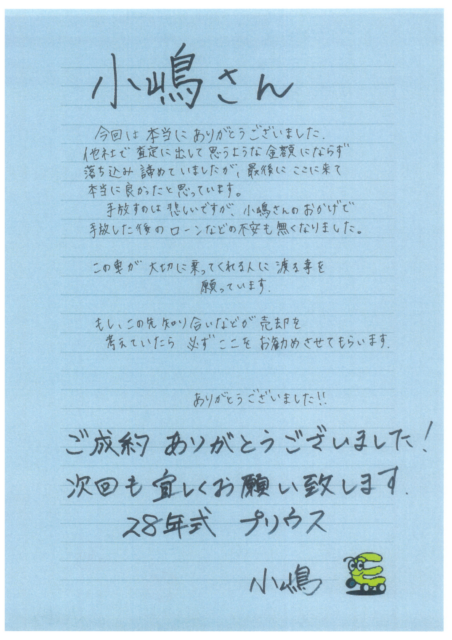 小嶋さん
今回は本当にありがとうございました.
他社で査定に出して思うような金額にならず
落ち込み諦めていましたが、最後にここに来て
本当に良かったと思っています。
手放すのは悲しいですが、小嶋さんのおかげで
手放した後のローンなどの不安も無くなりました。
この車が大切に乗ってくれる人に渡る事を
願っています.
もし、この先知り合いなどが売却を
考えていたら必ずここをお勧めさせてもらいます.
ありがとうございました!!
ご成約ありがとうございました!
次回も宜しくお願い致します.
28年式 プリウス
小嶋